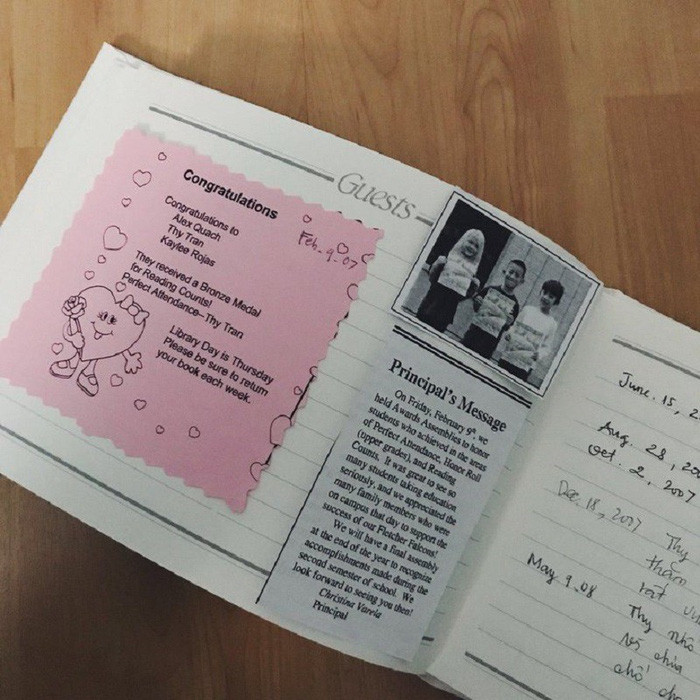 Guests
Congratulations
Feb. 9. 07
Congratulations to
Alex Quach
Thy Tran
Kaylee Rojas
They received a Bronze Medal
for Reading Counts!
Perfect Attendance–Thy Tran
Library Day is Thursday
Please be sure to return
your book each week.
Principal's Message
On Friday, February 9th, we
held Awards Assemblies to honor
students who achieved in the areas
of Perfect Attendance, Honor Roll
(upper grades), and Reading
Counts. It was great to see so
many students taking education
seriously, and we appreciated the
many family members who were
on campus that day to support the
success of our Fletcher Falcons!
We will have a final assembly
at the end of the year to recognize
accomplishments made during the
second semester of school. We
look forward to seeing you then!
Christina Varela
Principal
June. 15,
Aug. 28, 20
Oct. 2, 2007
Dec. 18, 2007 Thy
May. 9. 08
Thy nhỏ